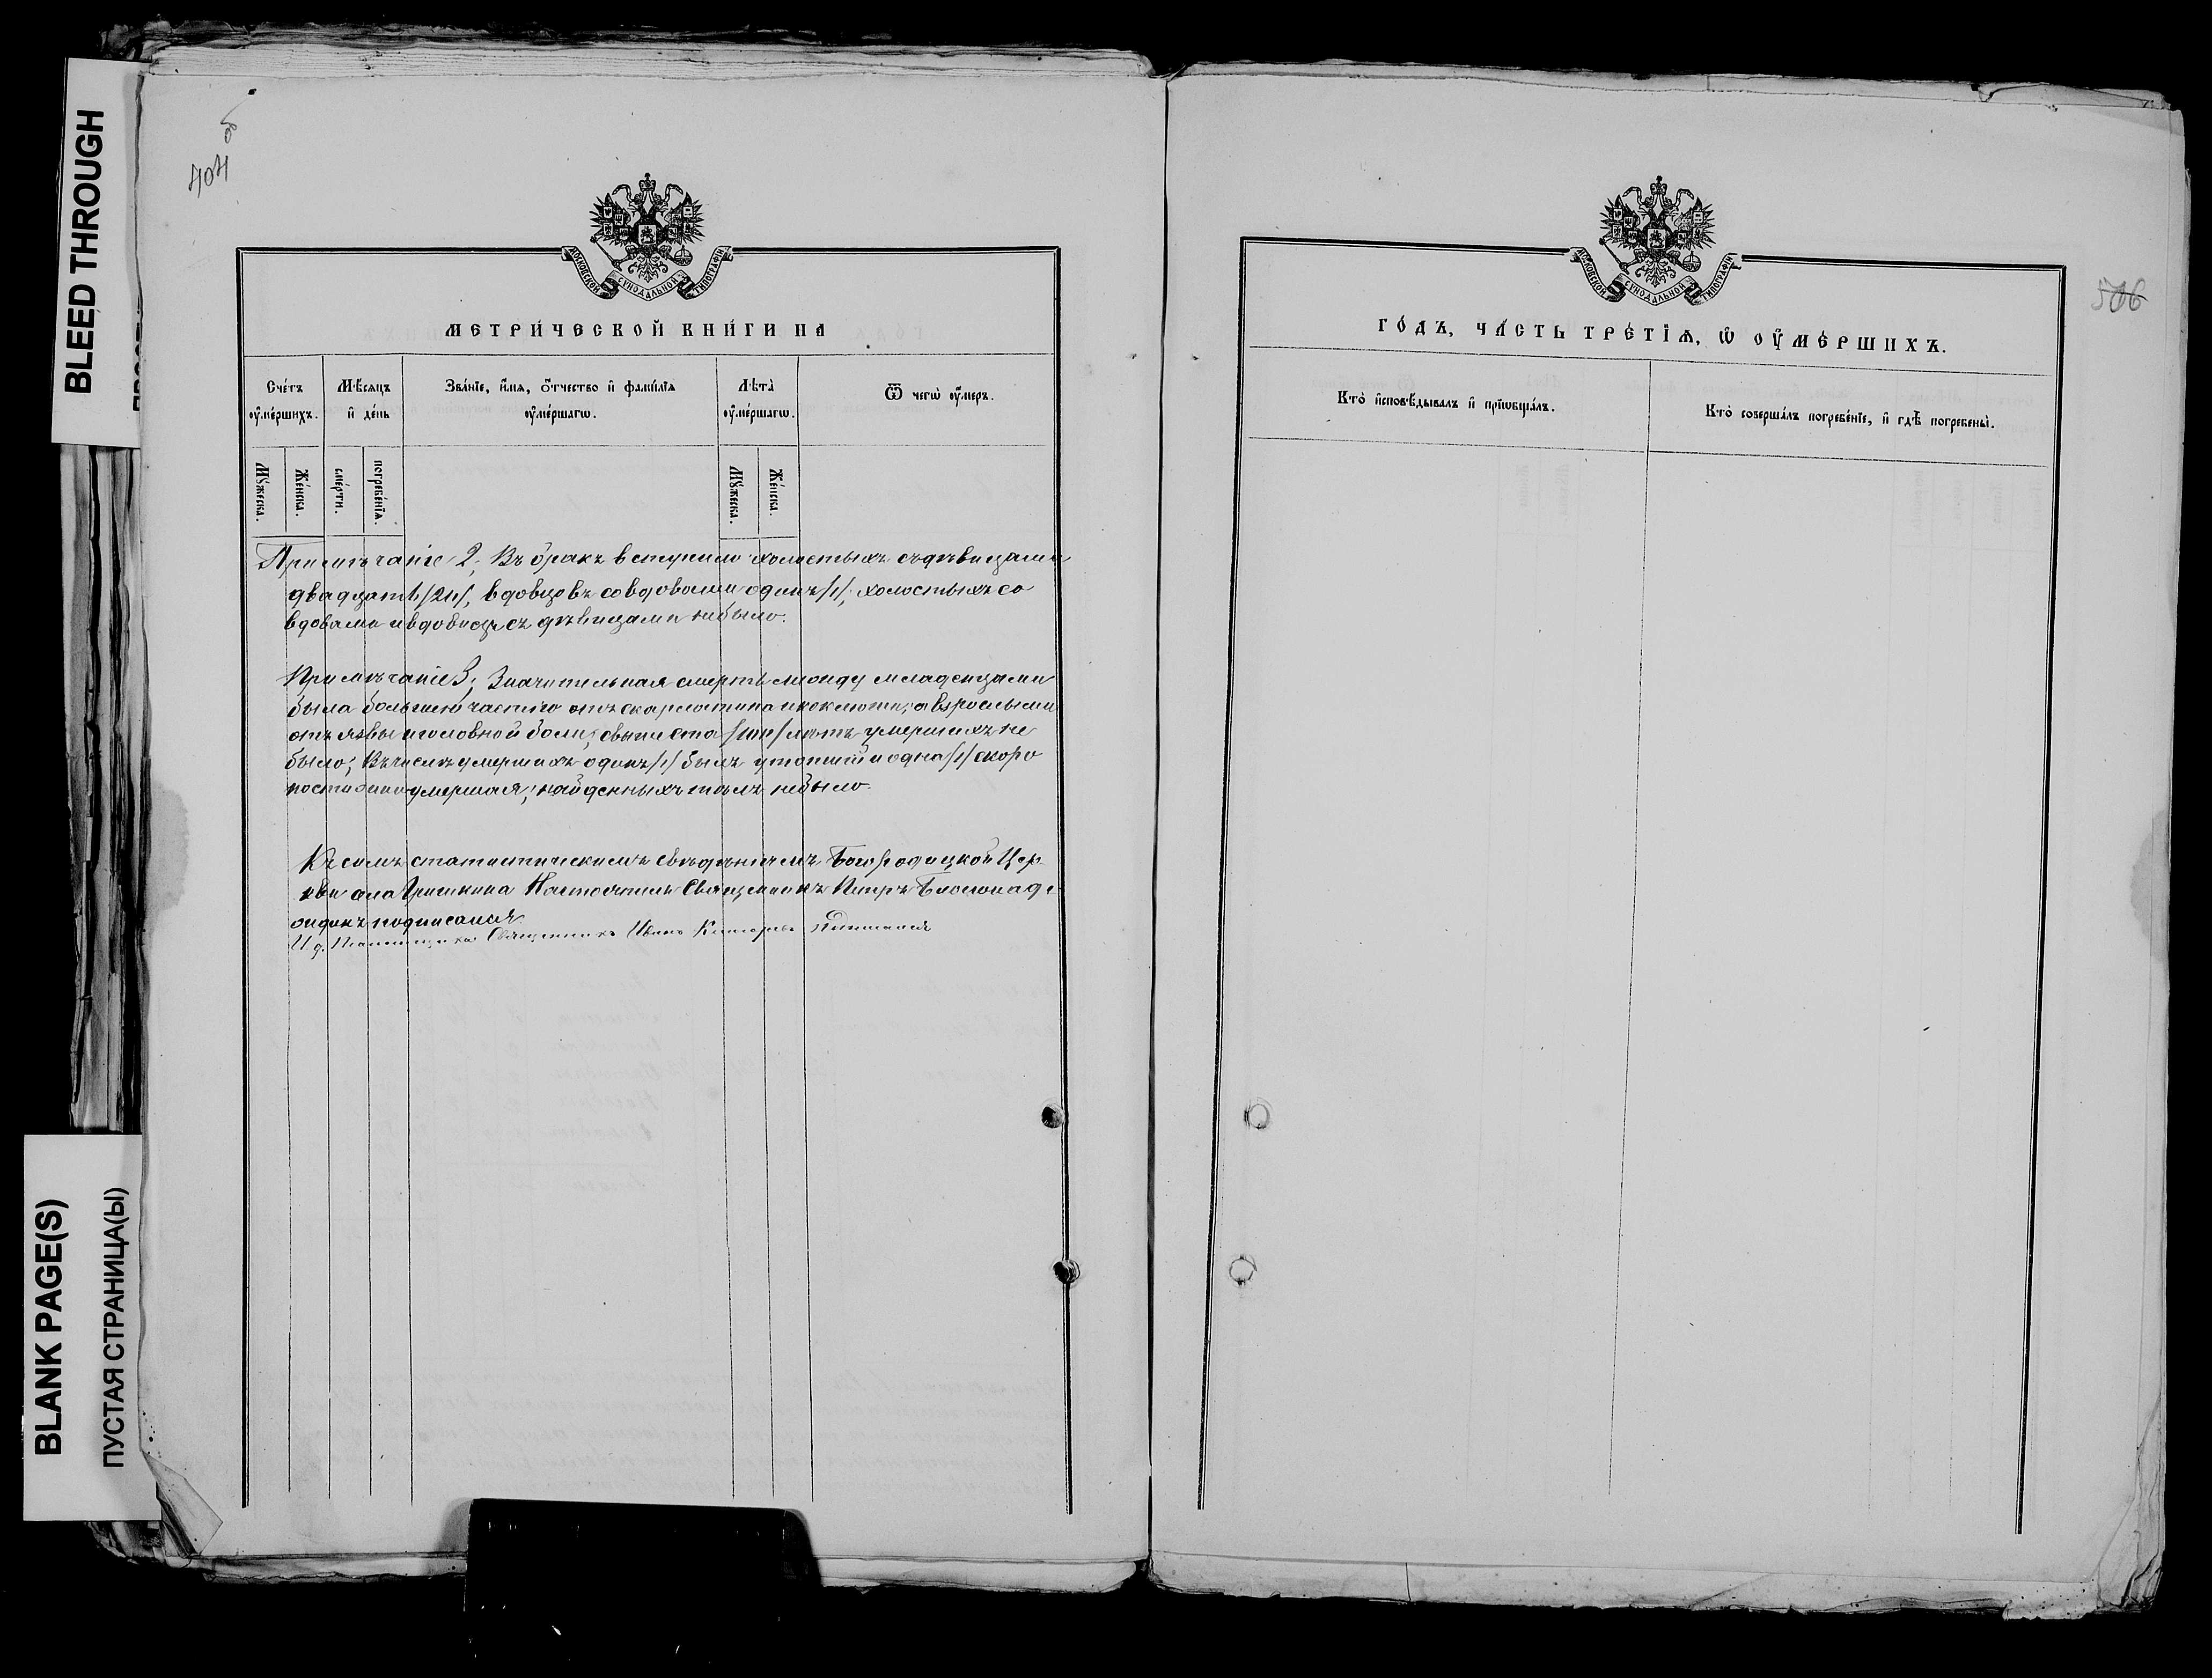 BLEED THROUGH
BLANK PAGE(S)
ПУСТАЯ СТРАНИЦА(Ы)
404 об
МОСКОВСКОЙ СѴНОДАЛЬНОЙ ТИПОГРАФІИ
МЕТРИ́ЧЕСКОЙ КНИ́ГИ НА
Сче́тъ ᲂу҆ме́ршихъ.
Мѣ́сяцъ и҆ де́нь
Зва́нїе, и҆́мя, ѻ҆́тчество и҆ фами́лїя ᲂу҆ме́ршагѡ.
Лѣ́та ᲂу҆ме́ршагѡ.
Ѿ чегѡ̀ ᲂу҆́меръ.
Мꙋ́жеска.
Же́нска.
сме́рти.
погребе́нїя.
Мꙋ́жеска.
Же́нска.
Примѣчаніе 2; Въ бракъ вступило холостыхъ съ дѣвицами
двадцать вдовцовъ со вдовами одинъ /1/; холостыхъ со
вдовами и вдовцевъ съ дѣвицами не было.
Примѣчаніе 3; Значительная смерть между младенцами
была большею частію отъ скарлатина и коклюши, а взрослыми
отъ язвы и головной боли; свыше ста /100/ лѣтъ умершихъ не
было; Въ числѣ умершихъ одинъ /1/ былъ утопшій и одна /1/ скоро
постижно умершая; найденныхъ тѣлъ не было.
Къ симъ статистическимъ свѣдѣніямъ Богородицкой Цер-
кви села Гришкина Настоятель Священникъ Петръ
подписался.
И. д. Помощника Священникъ Иванъ подписался
506
МОСКОВСКОЙ СѴНОДАЛЬНОЙ ТИПОГРАФІИ
ГО́ДЪ, ЧА́СТЬ ТРЕ́ТЇѦ, Ѡ҆ ОУ҆МЕ́РШИХЪ.
Кто̀ и҆сповѣ́дывалъ и҆ прїѡбща́лъ.
Кто̀ соверша́лъ погребе́нїе, и҆ гдѣ̀ погребены̀.